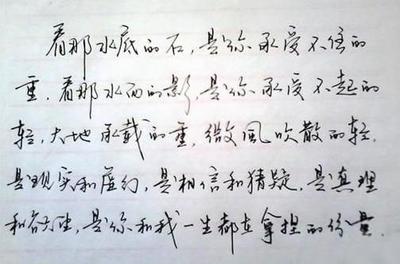 看那水底的石,是你承受不住的
重.看那水面的影,是你承受不起的
轻,大地承载的重,微风吹散的轻.
是现实和虚幻,是相信和猜疑.是真理
和,是你和我一生都在拿捏的份量.